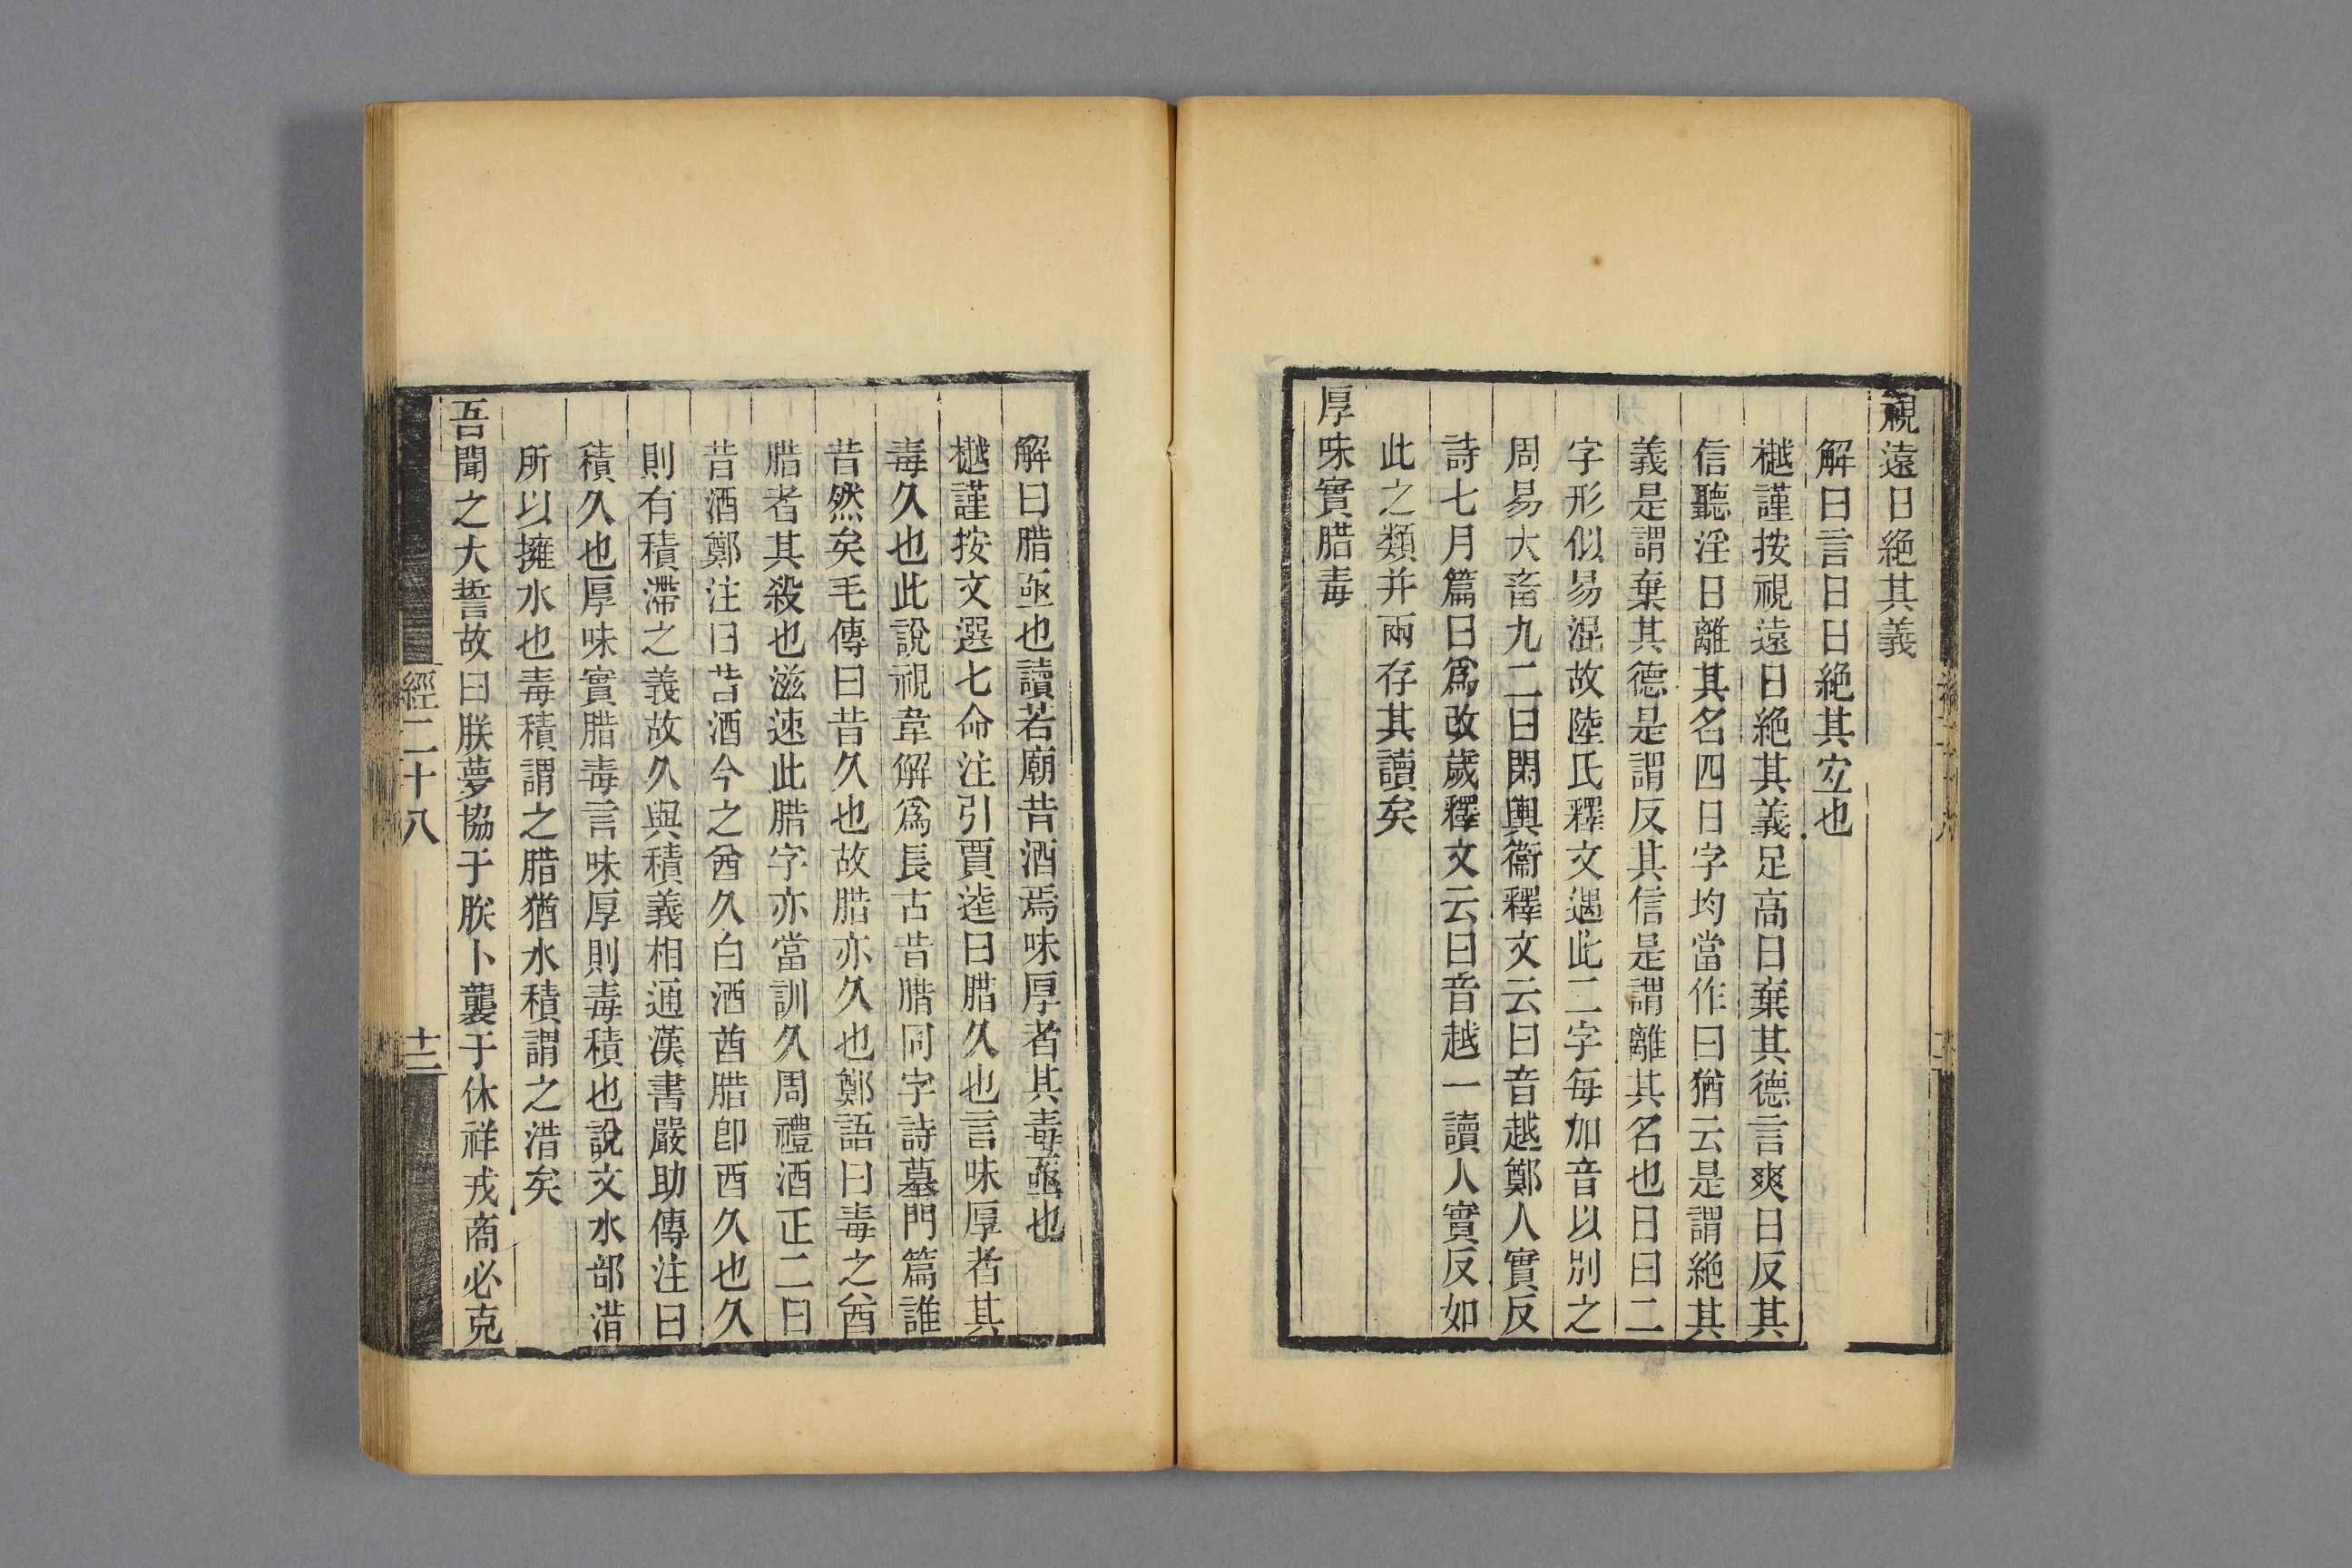 視遠日絶其義
解曰言日日絶其宐也
樾謹按視遠日絶其義足高日棄其德言爽日反其
信聽淫日離其名四日字均當作曰猶云是謂絶其
義是謂棄其德是謂反其信是謂離其名也日曰二
字形似易混故陸氏釋文遇此二字每加音以別之
周易大畜九二曰閑輿衞釋文云曰音越鄭人實反
詩七月篇曰爲改歲釋文云曰音越一讀人實反如
此之類并兩存其讀矣
厚味實腊毒
解曰腊亟也讀若廟昔酒焉味厚者其毒亟也
樾謹按文選七命注引賈逵曰腊久也言味厚者其
毒久也此說視韋解爲長古昔腊同字詩墓門篇誰
昔然矣毛傳曰昔久也故腊亦久也鄭語曰毒之酋
腊者其殺也滋速此腊字亦當訓久周禮酒正二曰
昔酒鄭注曰昔酒今之酋久白酒酋腊卽酉久也久
則有積滯之義故久與積義相通漢書嚴助傳注曰
積久也厚味實腊毒言味厚則毒積也說文水部浩
所以擁水也毒積謂之腊猶水積謂之浩矣
吾聞之大誓故曰朕夢協于朕卜襲于休祥戎商必克
經二十八
十二